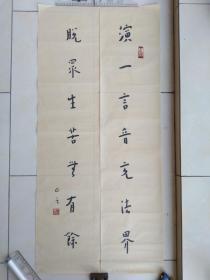 演一言音充法界
脱眾生苦無有餘